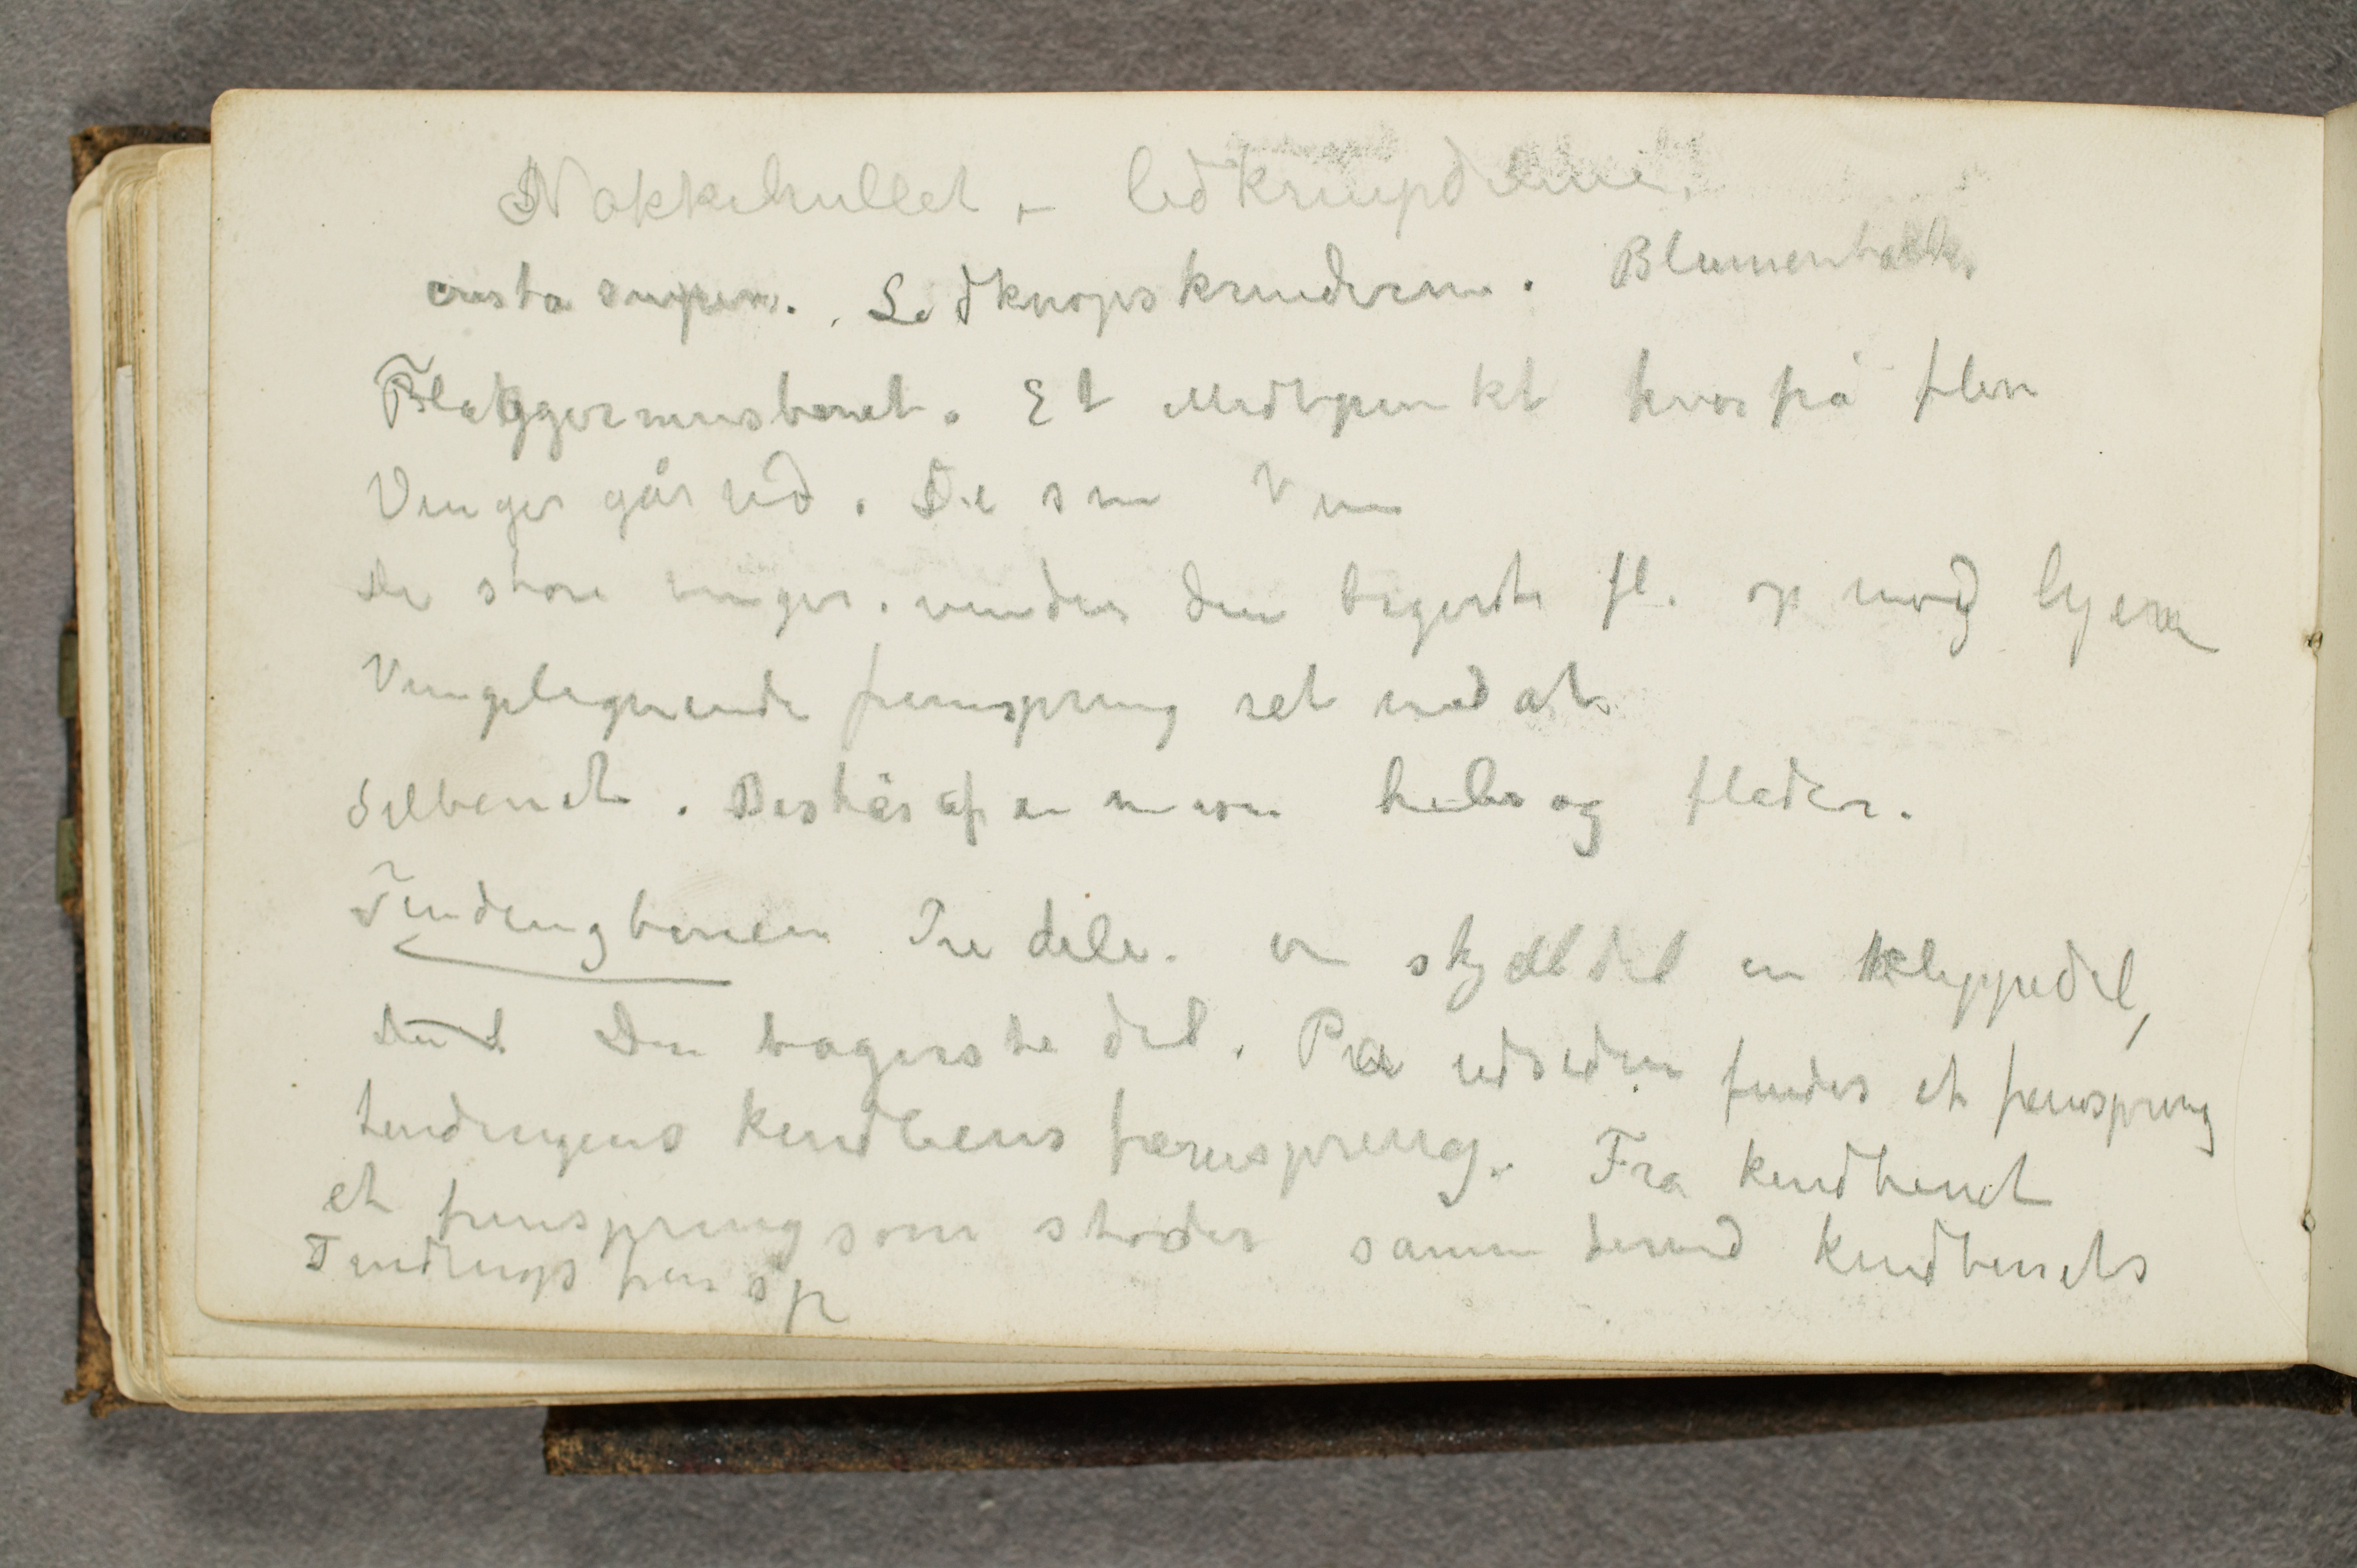 Nakkehullet – ledknupdelene.
crista superi. Ledknopskruderne. Blumenbachs
Flaggermusbenet. Et Midtpunkt hvorfra flere
Vinger går ud. De sm Vin
De store vinger. vender den bagerste fl. op mod hjern
Vingelignende fremspring ret nedat.
Silbenet. Består af en huler og flader.
Tindingbenen Tre dele. en skjælldel en klippedel,
Den bagerste del. På udsiden findes et fremspring
tindingens kindbens fremspring. Fra kindbenet
et fremspring som støder sammen med kindbenets
Tindings frem sp